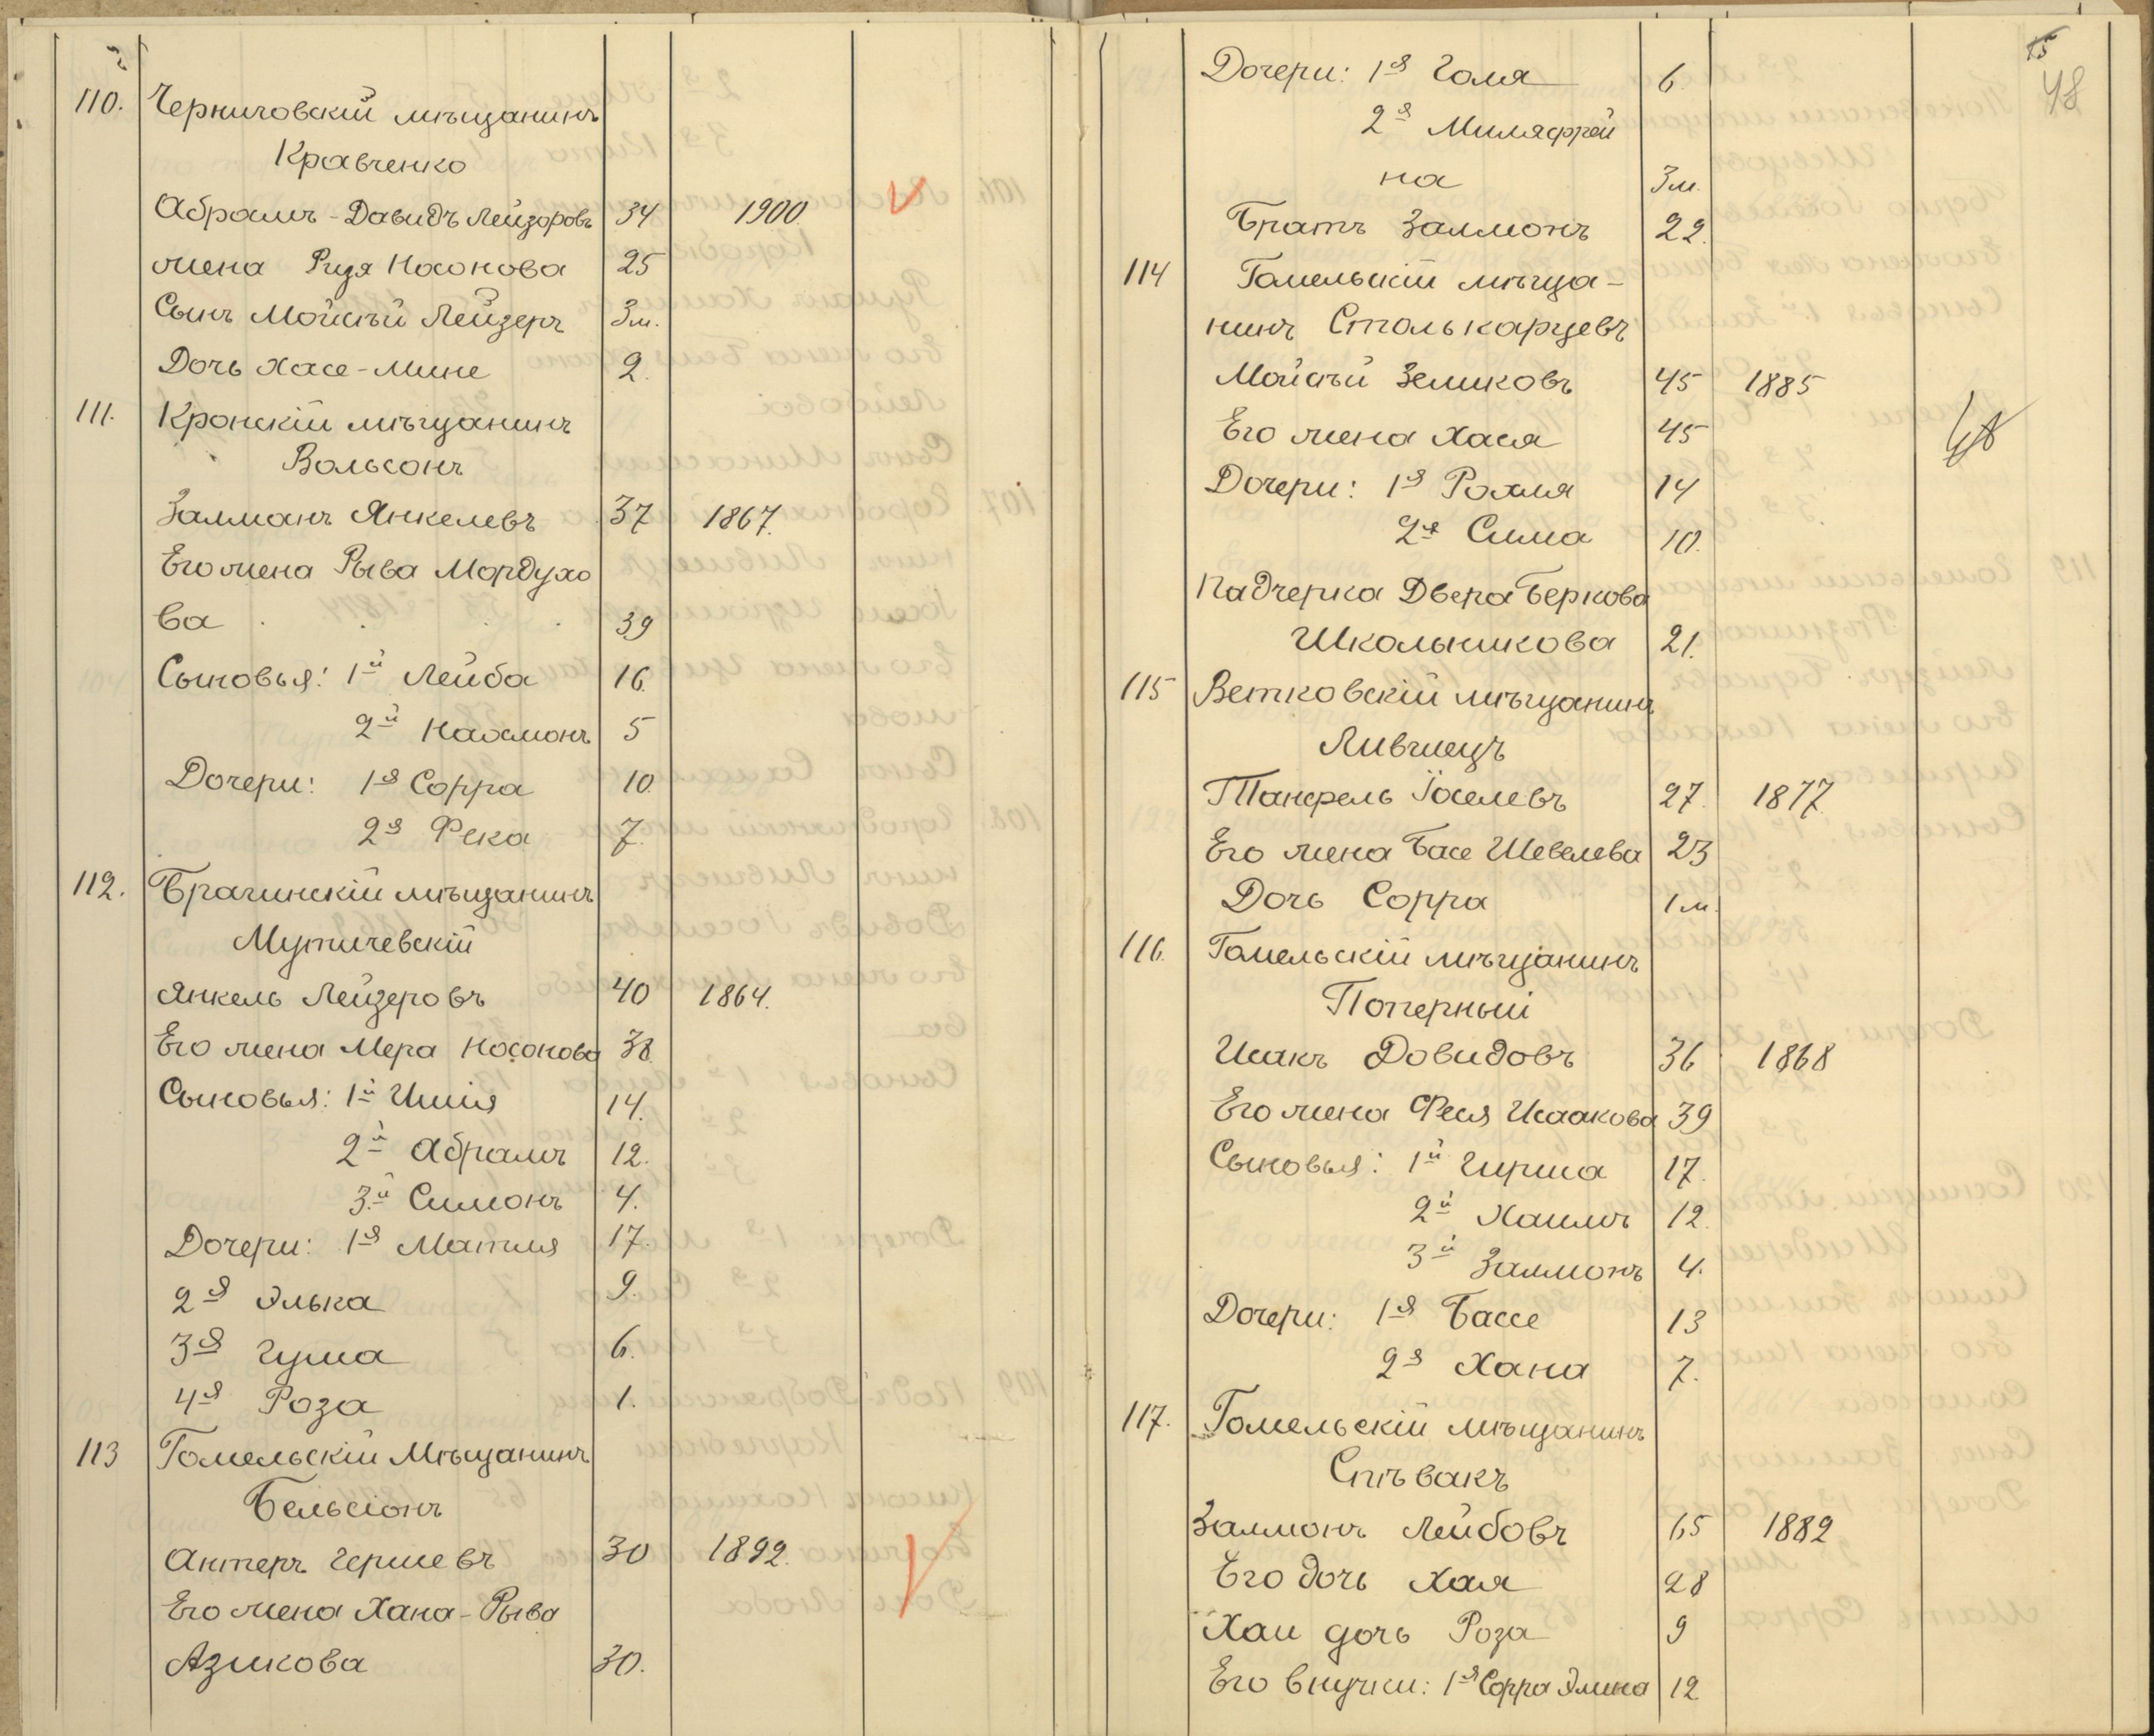 110. Черниговскій мѣщанинъ
Кравченко
Абрамъ-Давидъ Лейзоровъ 34 1900
жена Рися Носонова 25
Сынъ Мойсѣй Лейзеръ 3 м.
Дочь Хасе-Мине 2.
111. Кронскій мѣщанинъ
Вольсонъ
Залманъ Янкелевъ 37 1867.
Его жена Рыва Мордухо
ва 39
Сыновья: 1й Лейба 16.
2й Нахмонъ 5
Дочери: 1я Сорра 10.
2я Фека 7.
112. Брагинскій мѣщанинъ
Мутичевскій
Янкель Лейзеровъ 40 1864.
Его жена Мера Носонова 38.
Сыновья: 1й Ишія 14.
2й Абрамъ 12.
3й Симонъ 4.
Дочери: 1я Матля 17.
2я Элька 9.
3я Гума 6.
4я Роза 1.
113 Гомельскій Мѣщанинъ
Бельсіонъ
Антеръ Гершевъ 30 1892.
Его жена Хана-Рыва
Азикова 30.
15
48
Дочери: 1я Голя 6.
2я Миляфрей
на 3 м.
Братъ Залмонъ 22.
114 Гомельскій мѣща-
нинъ Столькарцевъ
Мойсѣй Зеликовъ 45 1885
Его жена Хася 45
Дочери: 1я Рохля 14
2я Сима 10.
Падчерка Двера Беркова
Школьникова 21.
115 Ветковскій мѣщанинъ
Лившецъ
Танфель Іоселевъ 27. 1877.
Его жена Басе Шевелева 23
Дочь Сорра 1 м.
116. Гомельскій мѣщанинъ
Поперный
Исакъ Довидовъ 36 1868
Его жена Фейя Исаакова 39
Сыновья: 1й Гирша 17.
2й Хаимъ 12.
3й Залмонъ 4.
Дочери: 1я Бассе 13
2я Хана 7.
117. Гомельскій мѣщанинъ
Спѣвакъ
Залмонъ Лейбовъ 65 1882
Его дочь Хая 28
Хаи дочь Роза 9
Его внучки: 1я Сорра Элька 12